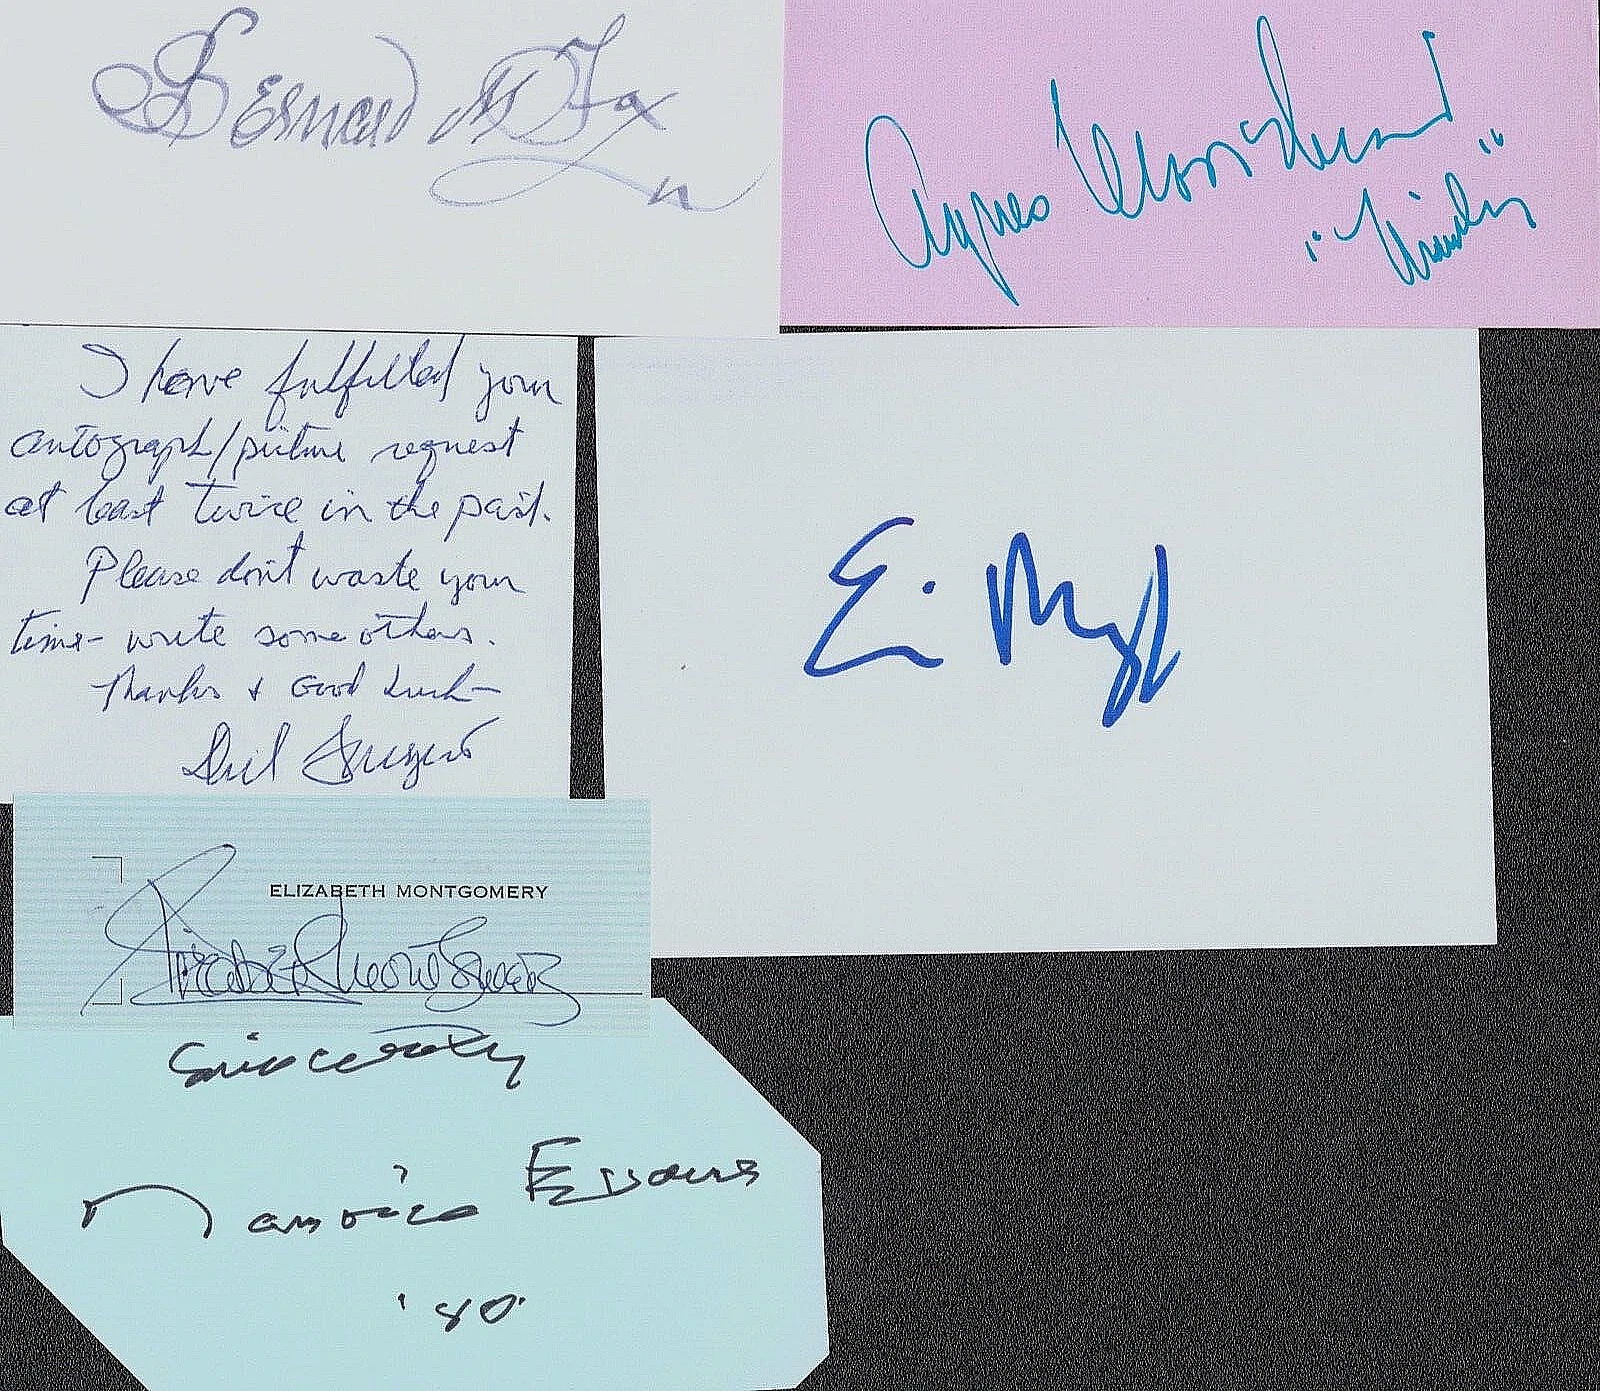 Bernard M Fox
Agnes Moorehead
"Endora"
I have fulfilled your
autograph/picture request
at least twice in the past.
Please don't waste your
time - write some others.
Thanks + Good Luck -
Dick Sargent
ELIZABETH MONTGOMERY
Elizabeth Montgomery
Sincerely
Maurice Evans
'80